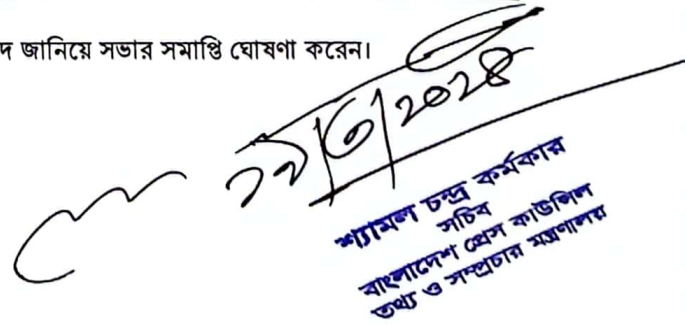 দ জানিয়ে সভার সমাপ্তি ঘোষণা করেন।
২০২৪
শ্যামল চন্দ্র কর্মকার
সচিব
বাংলাদেশ প্রেস কাউন্সিল
তথ্য ও সম্প্রচার মন্ত্রণালয়